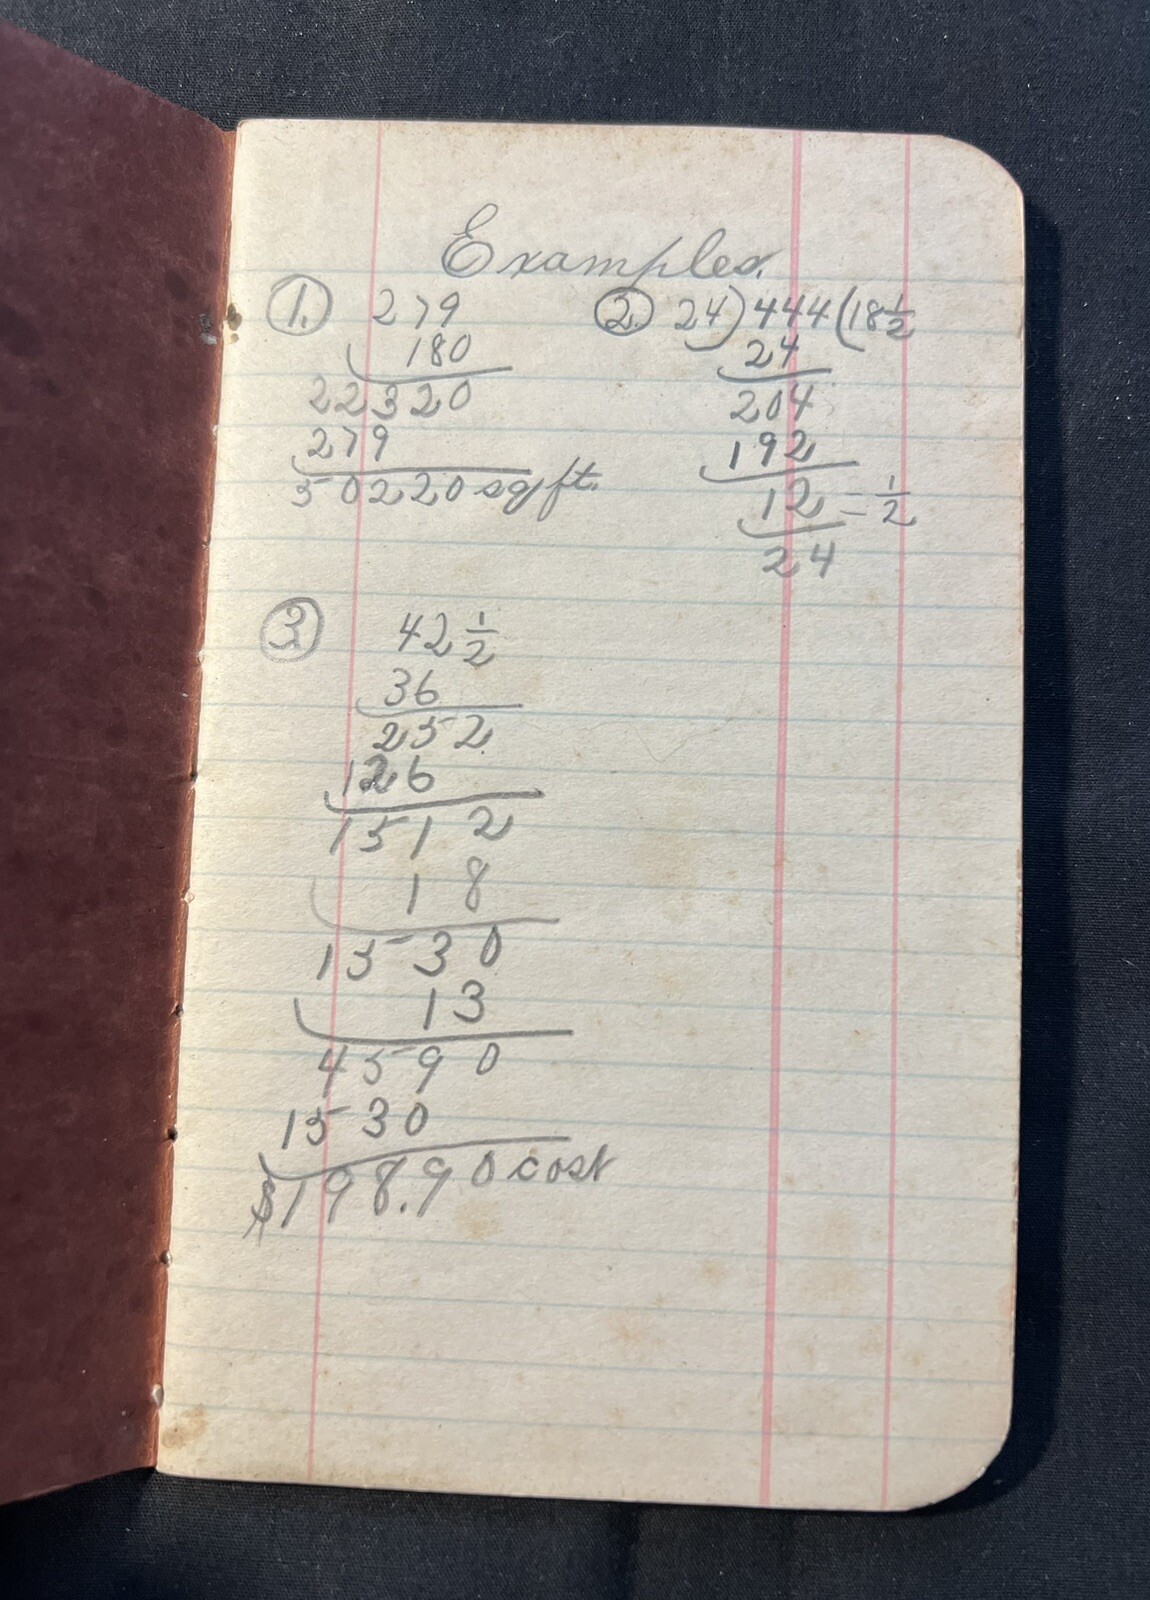 Examples.
1. 279
180
22320
279
50220 sq ft.
2. 24)444(18 1/2
24
204
192
12 = 1/2
24
3. 42 1/2
36
252
126
1512
18
1530
13
4590
1530
$198.90 cost